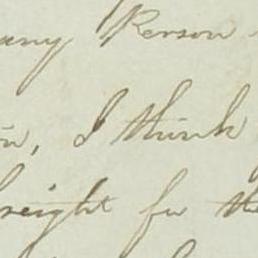 any Person
, I think
freight for the